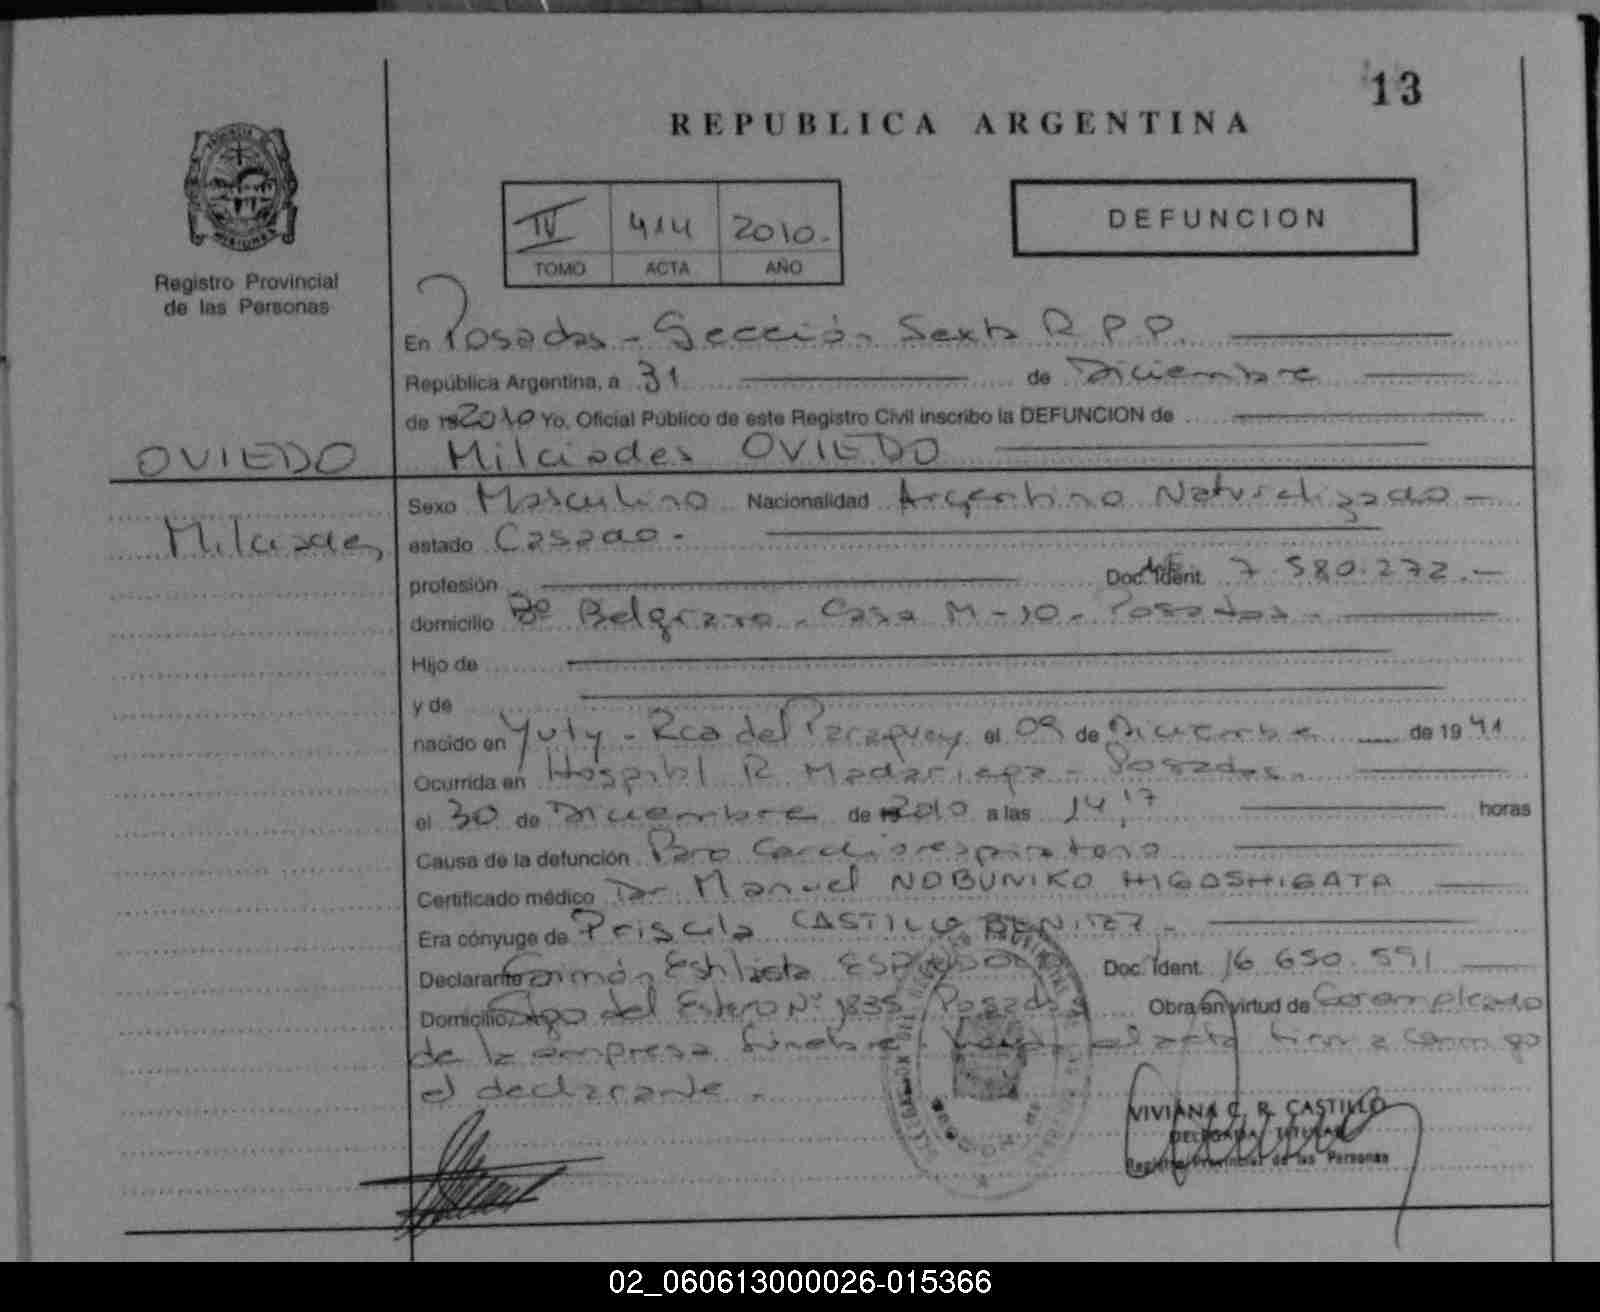 13
REPUBLICA ARGENTINA
PROVINCIA DE MISIONES
Registro Provincial
de las Personas
IV 414 2010.
TOMO ACTA AÑO
DEFUNCION
En Posadas - Sección Sexta R.P.P.
República Argentina, a 31 de Diciembre
de 192010 Yo, Oficial Público de este Registro Civil inscribo la DEFUNCION de
OVIEDO Milciades OVIEDO
Milciades
Sexo Masculino Nacionalidad Argentino Naturalizado -
estado Casado.
profesión Doc. Ident. 7.580.272.-
domicilio Bº Belgrano - Casa M-10 - Posadas -
Hijo de
y de
nacido en Yuty - Rca del Paraguay el 09 de Diciembre de 1941
Ocurrida en Hospital R. Madariaga - Posadas.
el 30 de Diciembre de 2010 a las 14,17 horas
Causa de la defunción Paro Cardiorespiratorio
Certificado médico Dr Manuel NOBUNIKO HIGOSHIGATA
Era cónyuge de Priscila CASTILLO BENITEZ -
Declarante Ramón Doc. Ident. 16.650.591
Domicilio Sgo del Estero Nº 1835 Posadas Obra en virtud de Ser empleado
de la empresa fúnebre. el acta firma conmigo
el declarante.
VIVIANA C. R. CASTILLO
DELEGADA TITULAR
Registro Provincial de las Personas
02_060613000026-015366